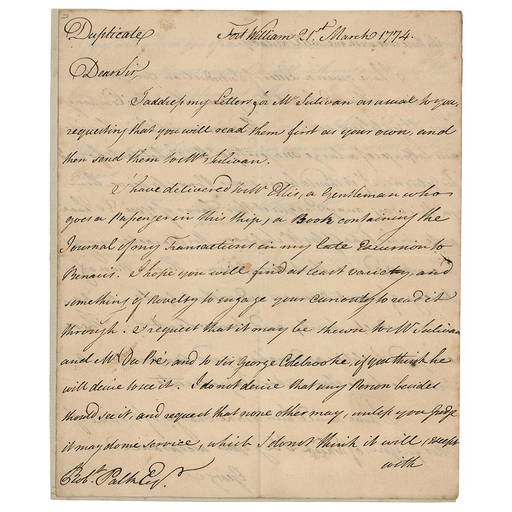 Duplicate
Fort William 21st March 1774.
Dear Sir
I address my Letters for Mr Sulivan as usual to you,
requesting that you will read them first as your own, and
then send them to Mr Sulivan.
I have delivered to Mr Ellis, a Gentleman who
goes a Passenger in this ship, a Book containing the
Journal of my Transactions in my late Excursion to
Benaris. I hope you will find at least variety, and
something of Novelty to engage your curiosity to read it
through. I request that it may be shewn to Mr Sulivan
and Mr Du Pré, and to Sir George Colebrooke, if you think he
will desire to see it. I do not desire that any Person besides
should see it, and request that none other may, unless you Judge
it may do me service, which I don't think it will, except
with
Robt. Palk Esqr.